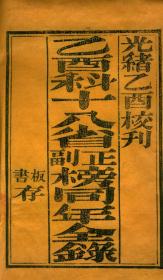 光緒乙酉校刊
乙酉科十八省正副榜同年全錄
板存
書